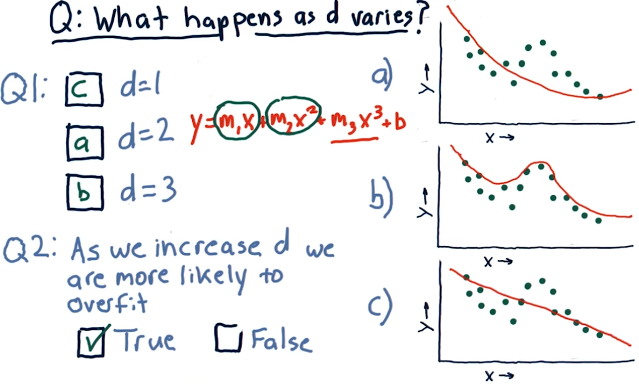 Q: What happens as d varies?
Q1: c d=1
a d=2
b d=3
y=m₁x+m₂x²+m₃x³+b
Q2: As we increase d we
are more likely to
overfit
✓ True
False
a)
y→
x→
b)
y→
x→
c)
y→
x→